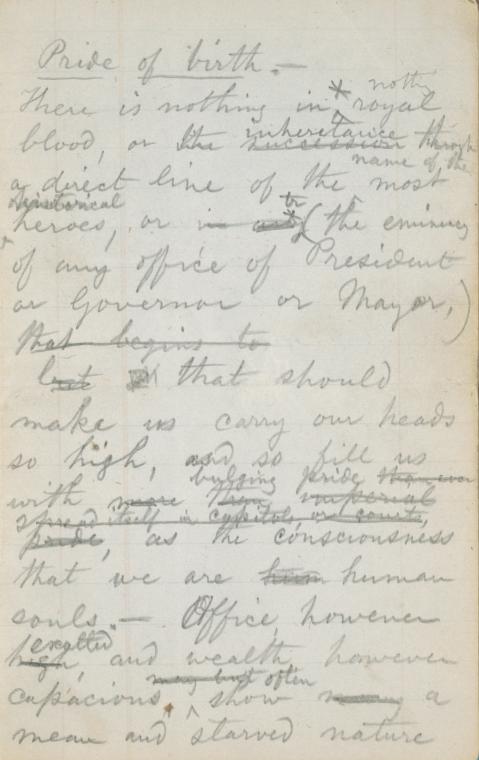 Pride of birth. —
noth
There is nothing in * royal
inheretance through
blood, or the succession
name of the
a direct line of the most
historical
heroes, or in any (the eminency
of any office of President
or Governor or Mayor,)
that begins to
but that should
make us carry our heads
so high, and so fill us
bulging pride than ever
with more than imperial
spread itself in capitol or court,
pride, as the consciousness
that we are human
souls. — Office, however
exalted
high, and wealth, however
may but often
capacious, show many a
mean and starved nature